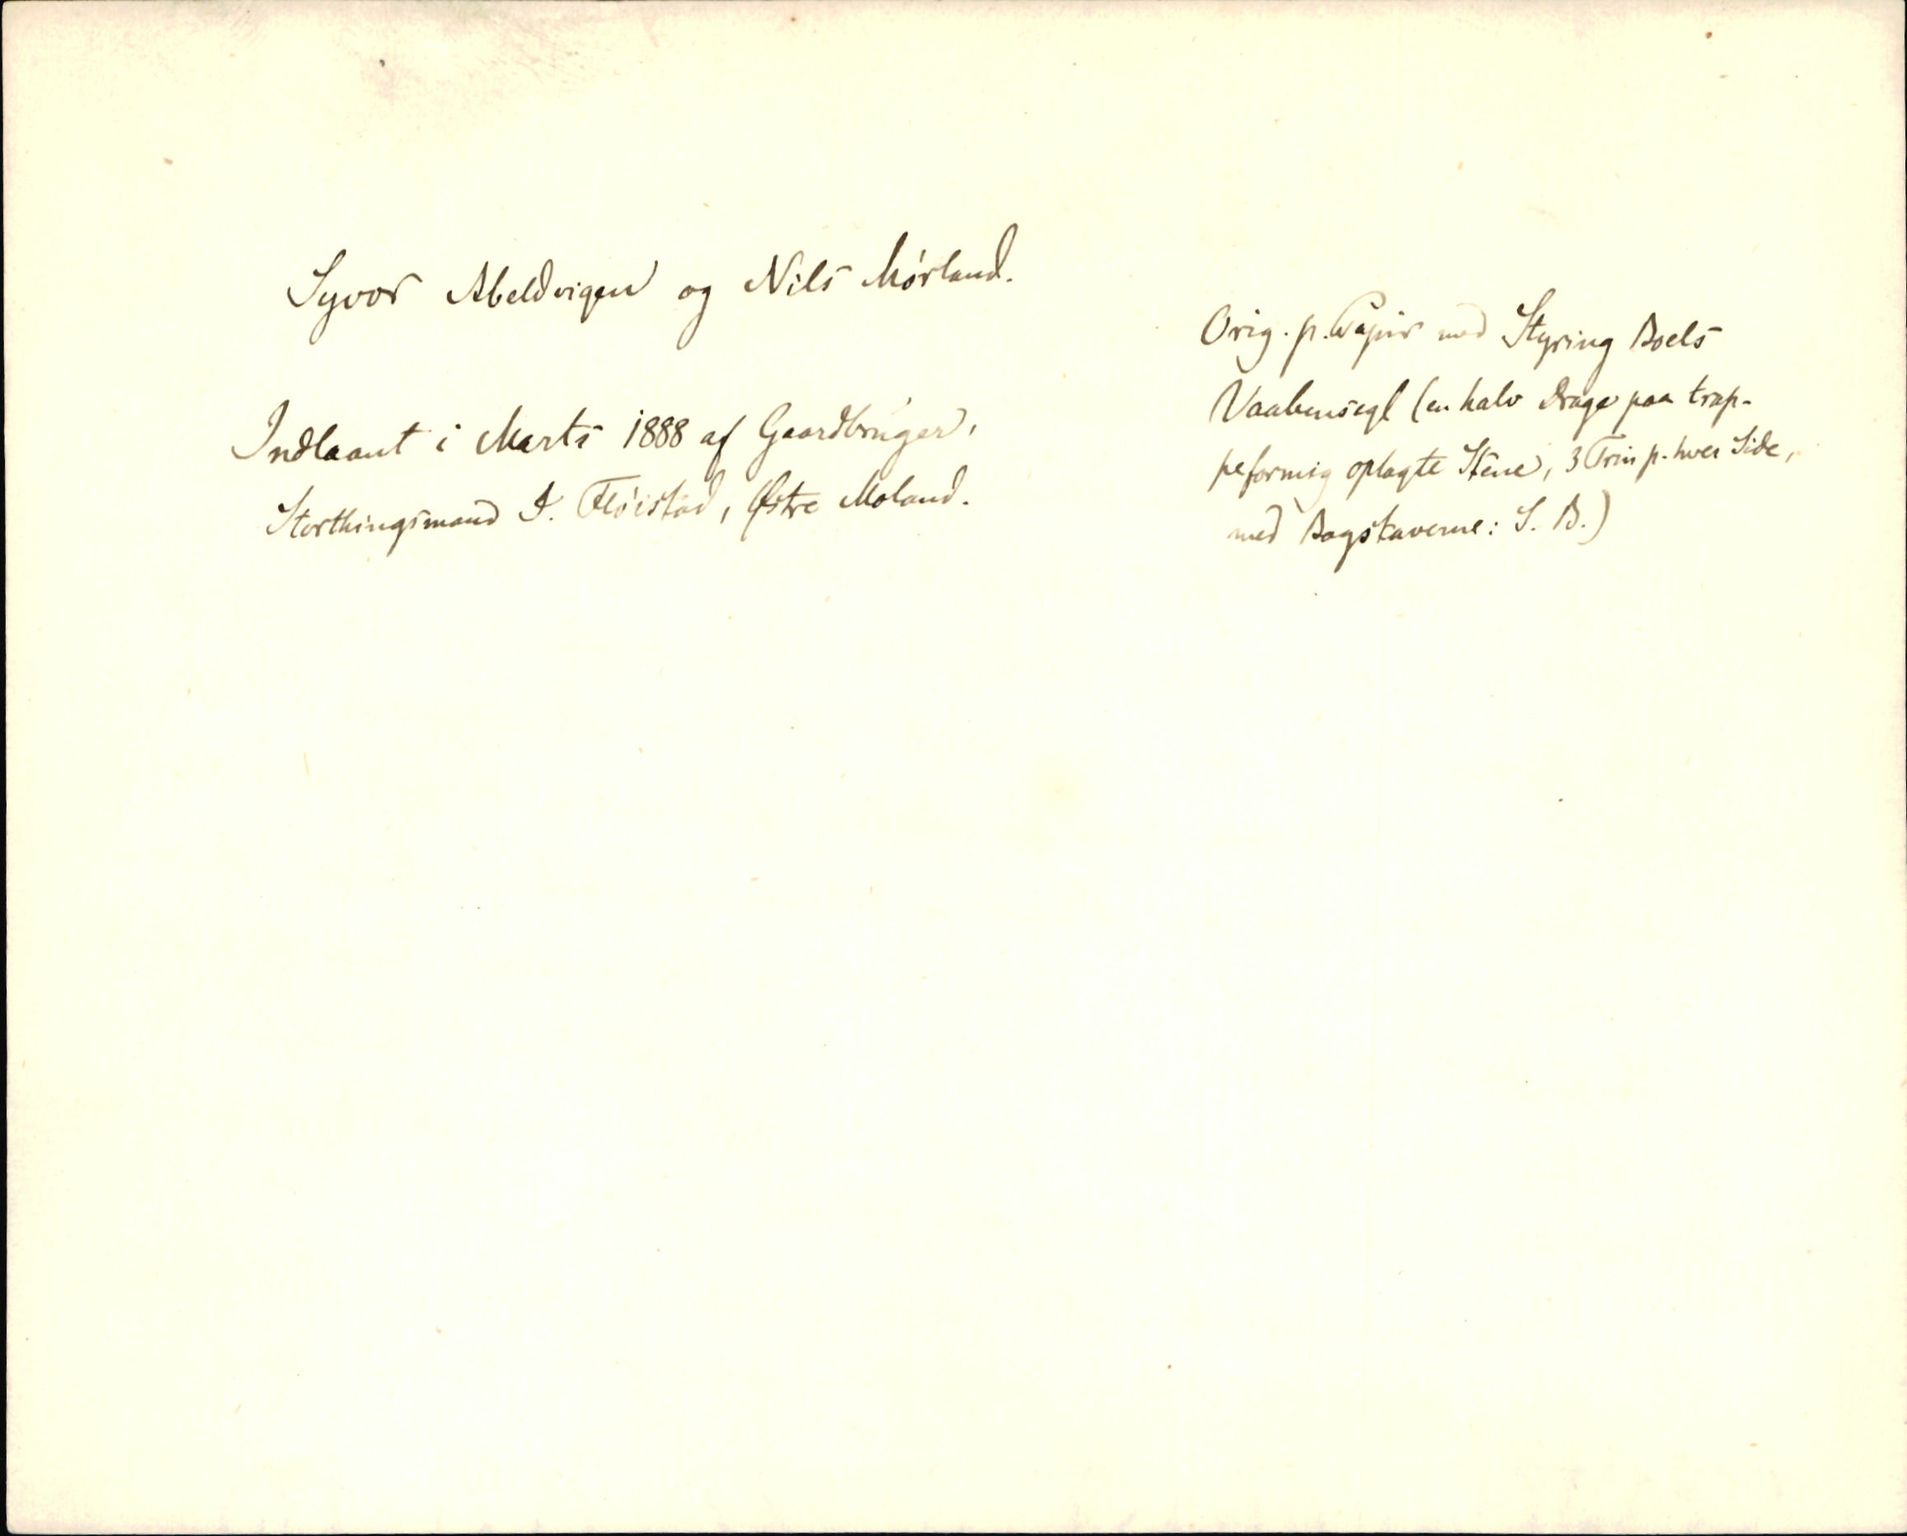 Syvor Abeldvigen og Nils Mørland.
Indlaant i Marts 1888 af Gaardbruger,
Storthingsmand I. Fløistad, Østre Moland.
Orig. p. Papir med Styring Boels
Vaabensegl (en halv Drage paa trap-
peformig oplagte Stene, 3 Trin p. hver Side,
med Bogstaverne: S. B.)